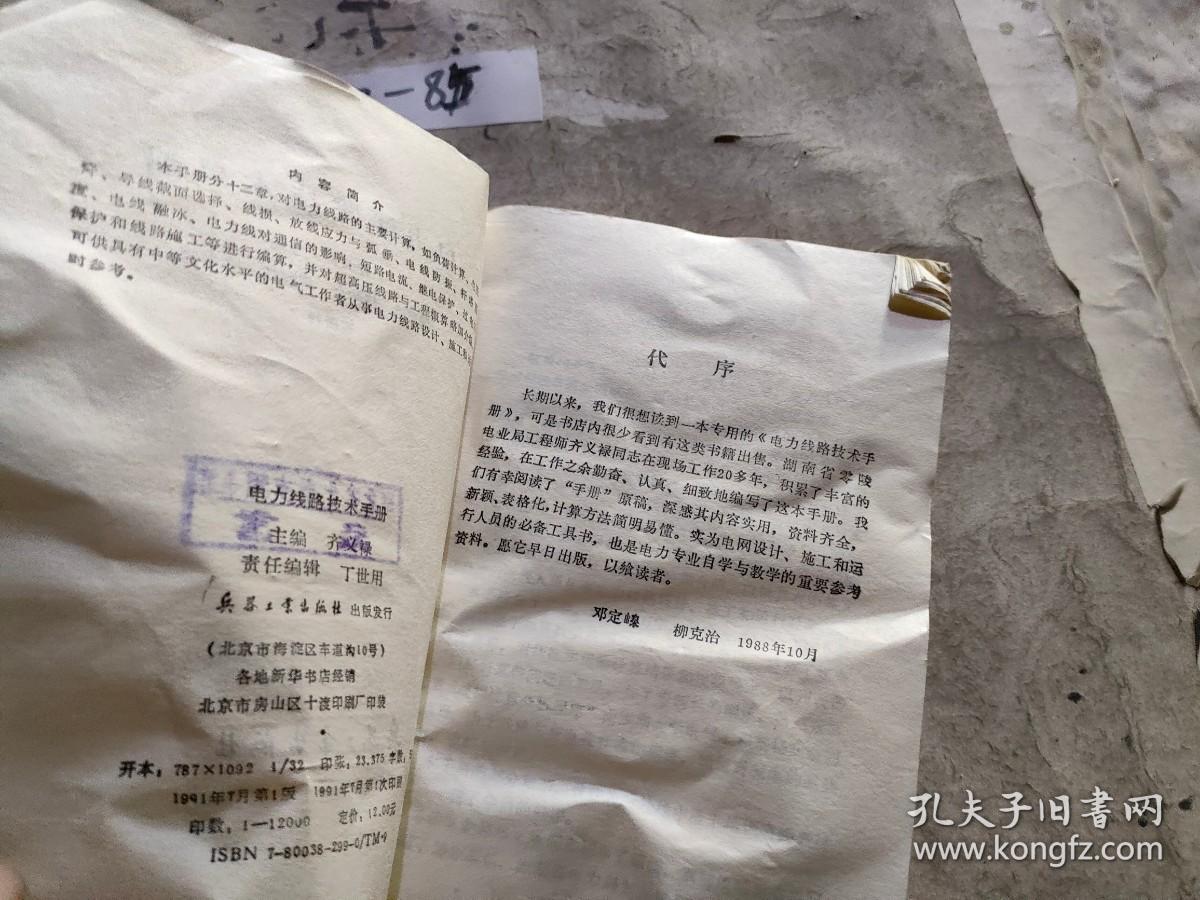 -85
内容简介
本手册分十二章，对电力线路的主要计算，如负荷计算、
导线截面选择、线损、放线应力与弧垂、电线防振、
电线融冰、电力线对通信的影响，短路电流、继电保护、
保护和线路施工等进行编算，并对超高压线路与工程概算略加介绍
可供具有中等文化水平的电气工作者从事电力线路设计、施工
时参考。
电力线路技术手册
主编 齐义禄
责任编辑 丁世用
兵器工业出版社 出版发行
（北京市海淀区车道沟10号）
各地新华书店经销
北京市房山区十渡印刷厂印装
开本：787×1092 1/32 印张：23.375 字数：
1991年7月第1版 1991年7月第1次印刷
印数：1—12000 定价：12.00元
ISBN 7-80038-299-0/TM·9
代序
长期以来，我们很想读到一本专用的《电力线路技术手
册》，可是书店内很少看到有这类书籍出售。湖南省零陵
电业局工程师齐义禄同志在现场工作20多年，积累了丰富的
经验，在工作之余勤奋、认真、细致地编写了这本手册。我
们有幸阅读了“手册”原稿，深感其内容实用，资料齐全，
新颖、表格化，计算方法简明易懂。实为电网设计、施工和运
行人员的必备工具书，也是电力专业自学与教学的重要参考
资料。愿它早日出版，以飨读者。
邓定嵘 柳克治 1988年10月
孔夫子旧书网
www.kongfz.com